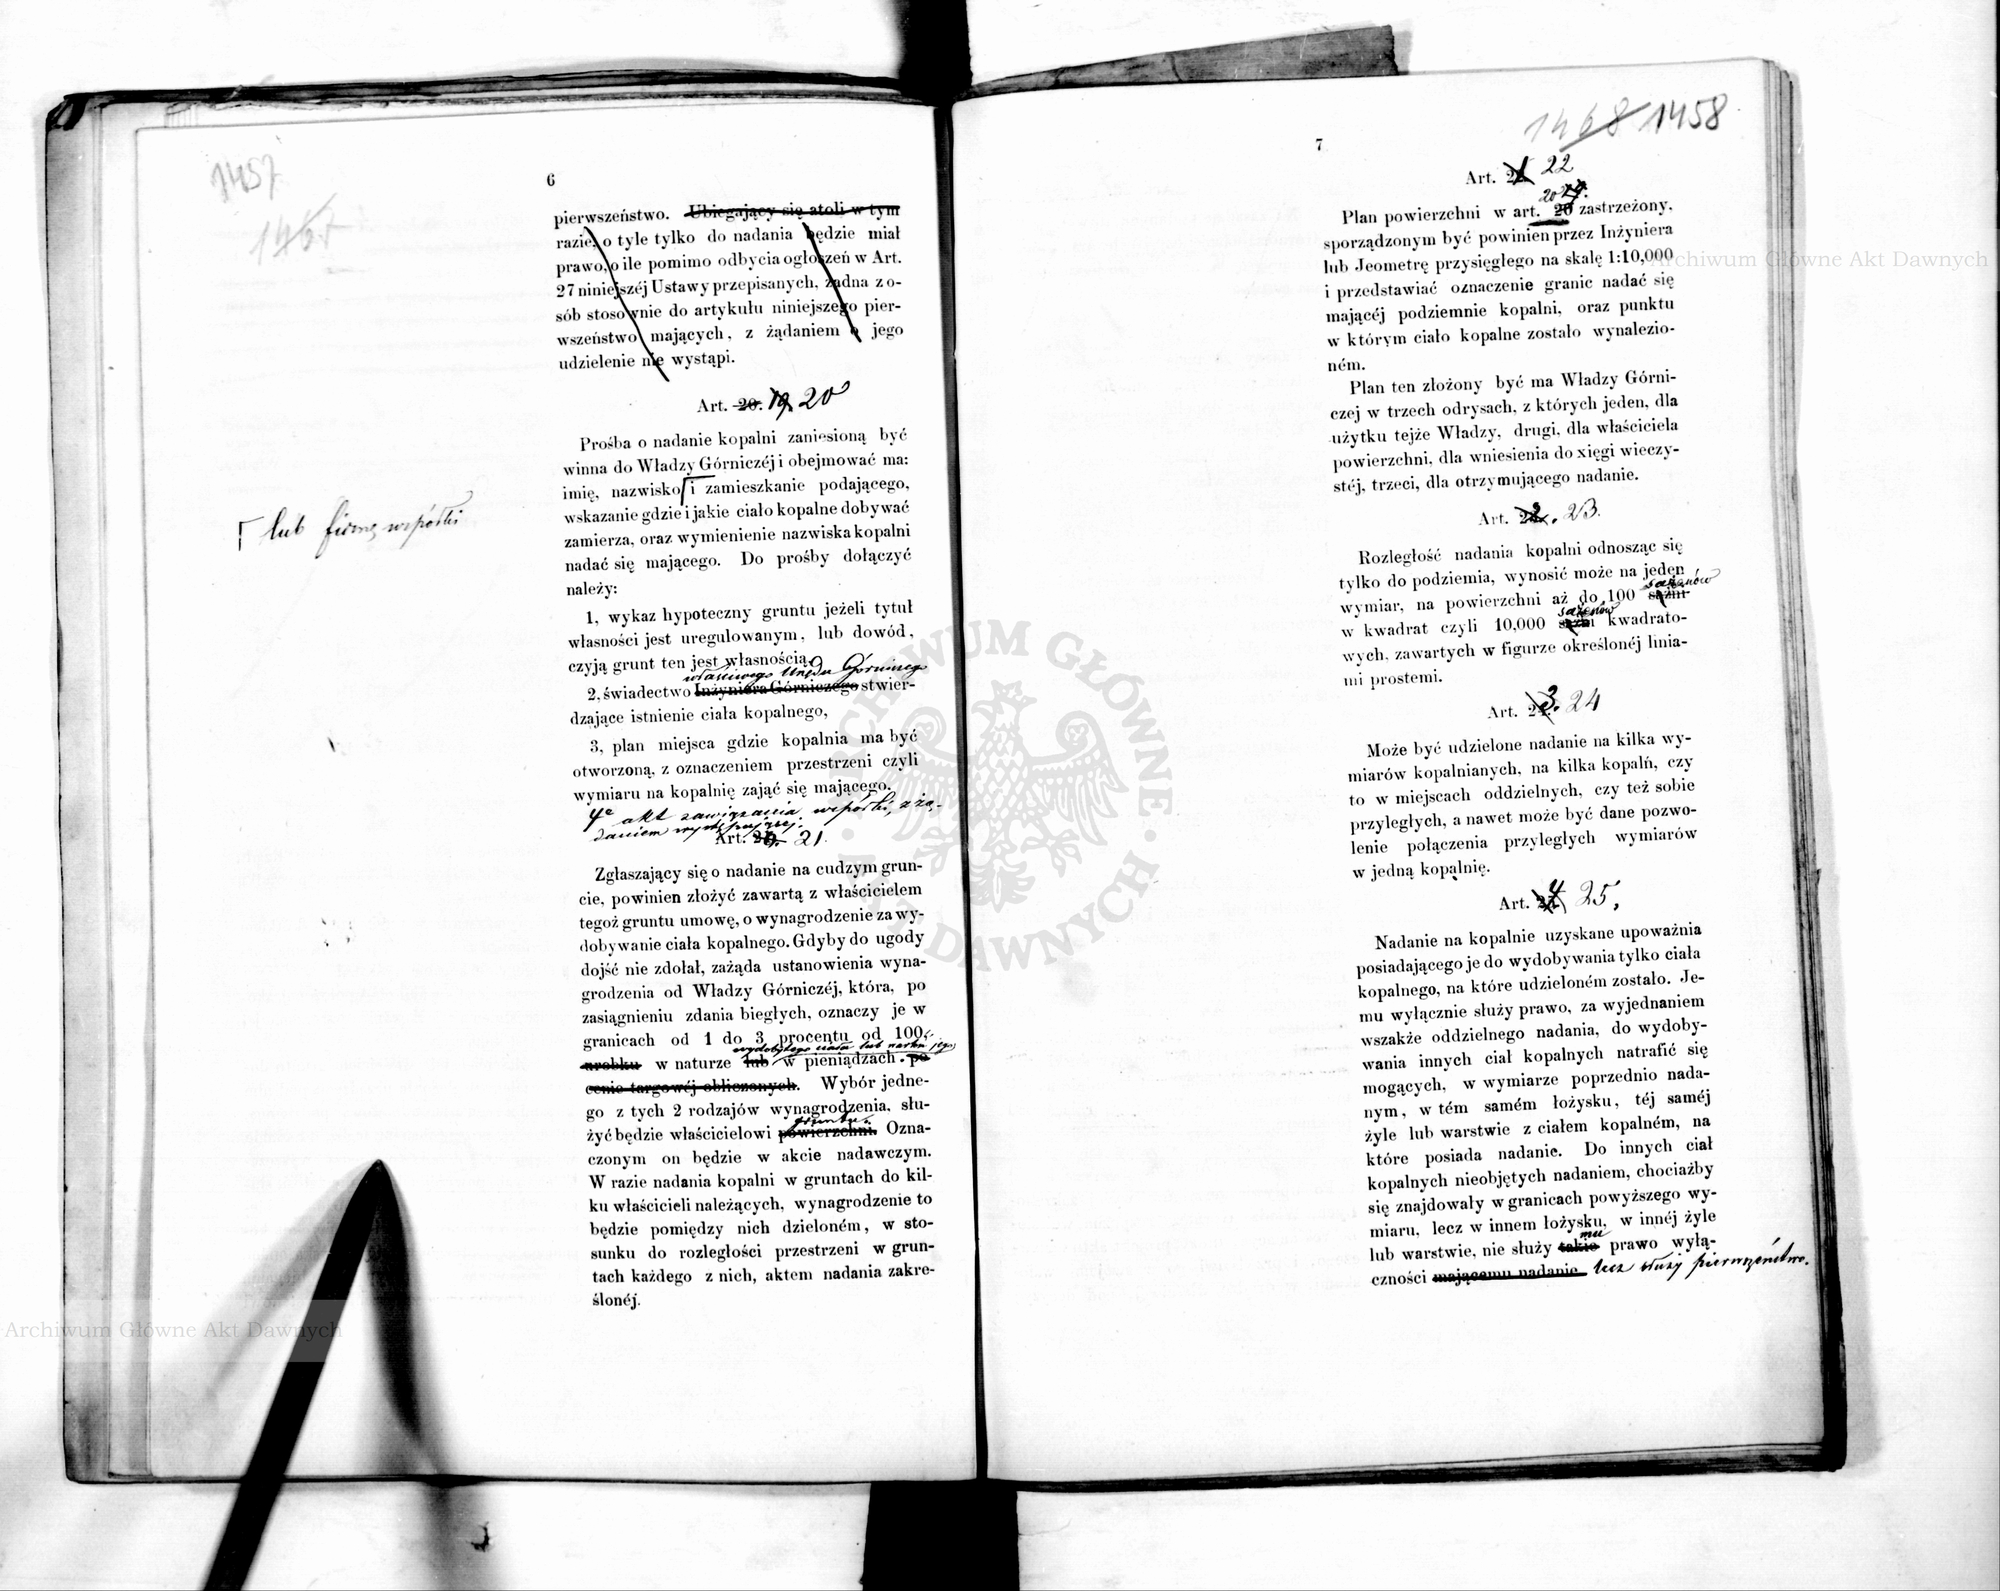 1457
1467
6
pierwszeństwo. Ubiegający się atoli w tym
razie, o tyle tylko do nadania będzie miał
prawo, o ile pomimo odbycia ogłoszeń w Art.
27 niniejszéj Ustawy przepisanych, żadna z o-
sób stosownie do artykułu niniejszego pier-
wszeństwo mających, z żądaniem o jego
udzielenie nie wystąpi.
Art. 20. 19. 20
Prośba o nadanie kopalni zaniesioną być
winna do Władzy Górniczéj i obejmować ma:
imię, nazwisko i zamieszkanie podającego,
lub firmę wspólki
wskazanie gdzie i jakie ciało kopalne dobywać
zamierza, oraz wymienienie nazwiska kopalni
nadać się mającego. Do prośby dołączyć
należy:
1, wykaz hypoteczny gruntu jeżeli tytuł
własności jest uregulowanym, lub dowód,
czyją grunt ten jest własnością,
właściwego Urzędu Górniczego
2, świadectwo Inżyniera Górniczego stwier-
dzające istnienie ciała kopalnego,
3, plan miejsca gdzie kopalnia ma być
otworzoną, z oznaczeniem przestrzeni czyli
wymiaru na kopalnię zająć się mającego.
4e akt zawiązania wspólki, z żą-
daniem występującej.
Art. 21.
Zgłaszający się o nadanie na cudzym grun-
cie, powinien złożyć zawartą z właścicielem
tegoż gruntu umowę, o wynagrodzenie za wy-
dobywanie ciała kopalnego. Gdyby do ugody
dojść nie zdołał, zażąda ustanowienia wyna-
grodzenia od Władzy Górniczéj, która, po
zasiągnieniu zdania biegłych, oznaczy je w
granicach od 1 do 3 procentu od 100,
wydobytego ciała lub jego
urobku w naturze lub w pieniądzach. po
cenie targowéj obliczonych. Wybór jedne-
go z tych 2 rodzajów wynagrodzenia, słu-
gruntu.
żyć będzie właścicielowi powierzchni. Ozna-
czonym on będzie w akcie nadawczym.
W razie nadania kopalni w gruntach do kil-
ku właścicieli należących, wynagrodzenie to
będzie pomiędzy nich dzieloném, w sto-
sunku do rozległości przestrzeni w grun-
tach każdego z nich, aktem nadania zakre-
ślonéj.
1468 1458
7
Art. 22
20
Plan powierzchni w art. 20 zastrzeżony,
sporządzonym być powinien przez Inżyniera
lub Jeometrę przysięglego na skalę 1:10,000
i przedstawiać oznaczenie granic nadać się
mającéj podziemnie kopalni, oraz punktu
w którym ciało kopalne zostało wynalezio-
ném.
Plan ten złożony być ma Władzy Górni-
czej w trzech odrysach, z których jeden, dla
użytku tejże Władzy, drugi, dla właściciela
powierzchni, dla wniesienia do xięgi wieczy-
stéj, trzeci, dla otrzymującego nadanie.
Art. 23.
Rozległość nadania kopalni odnosząc się
tylko do podziemia, wynosić może na jeden
sażenów
wymiar, na powierzchni aż do 100 sążni
sażenów
w kwadrat czyli 10,000 sążni kwadrato-
wych, zawartych w figurze określonéj linia-
mi prostemi.
Art. 24
Może być udzielone nadanie na kilka wy-
miarów kopalnianych, na kilka kopalń, czy
to w miejscach oddzielnych, czy też sobie
przyległych, a nawet może być dane pozwo-
lenie połączenia przyległych wymiarów
w jedną kopalnię.
Art. 25.
Nadanie na kopalnie uzyskane upoważnia
posiadającego je do wydobywania tylko ciała
kopalnego, na które udzieloném zostało. Je-
mu wyłącznie służy prawo, za wyjednaniem
wszakże oddzielnego nadania, do wydoby-
wania innych ciał kopalnych natrafić się
mogących, w wymiarze poprzednio nada-
nym, w tém samém łożysku, téj saméj
żyle lub warstwie z ciałem kopalném, na
które posiada nadanie. Do innych ciał
kopalnych nieobjętych nadaniem, chociażby
się znajdowały w granicach powyższego wy-
miaru, lecz w innem łożysku, w innéj żyle
mu
lub warstwie, nie służy takie prawo wyłą-
czności mającemu nadanie lecz służy pierwszeństwo.
Archiwum Główne Akt Dawnych
Archiwum Główne Akt Dawnych
ARCHIWUM GŁÓWNE AKT DAWNYCH